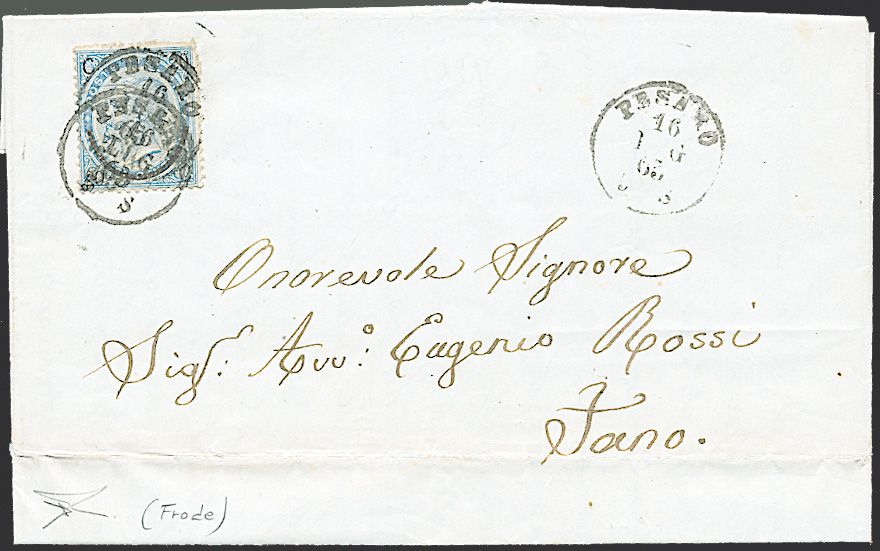 C
PESARO
16
PESARO
LUG
65
S
PESARO
16
L G
65
S
Onorevole Signore
Sigr: Avv:º Eugenio Rossi
Fano.
(Frode)